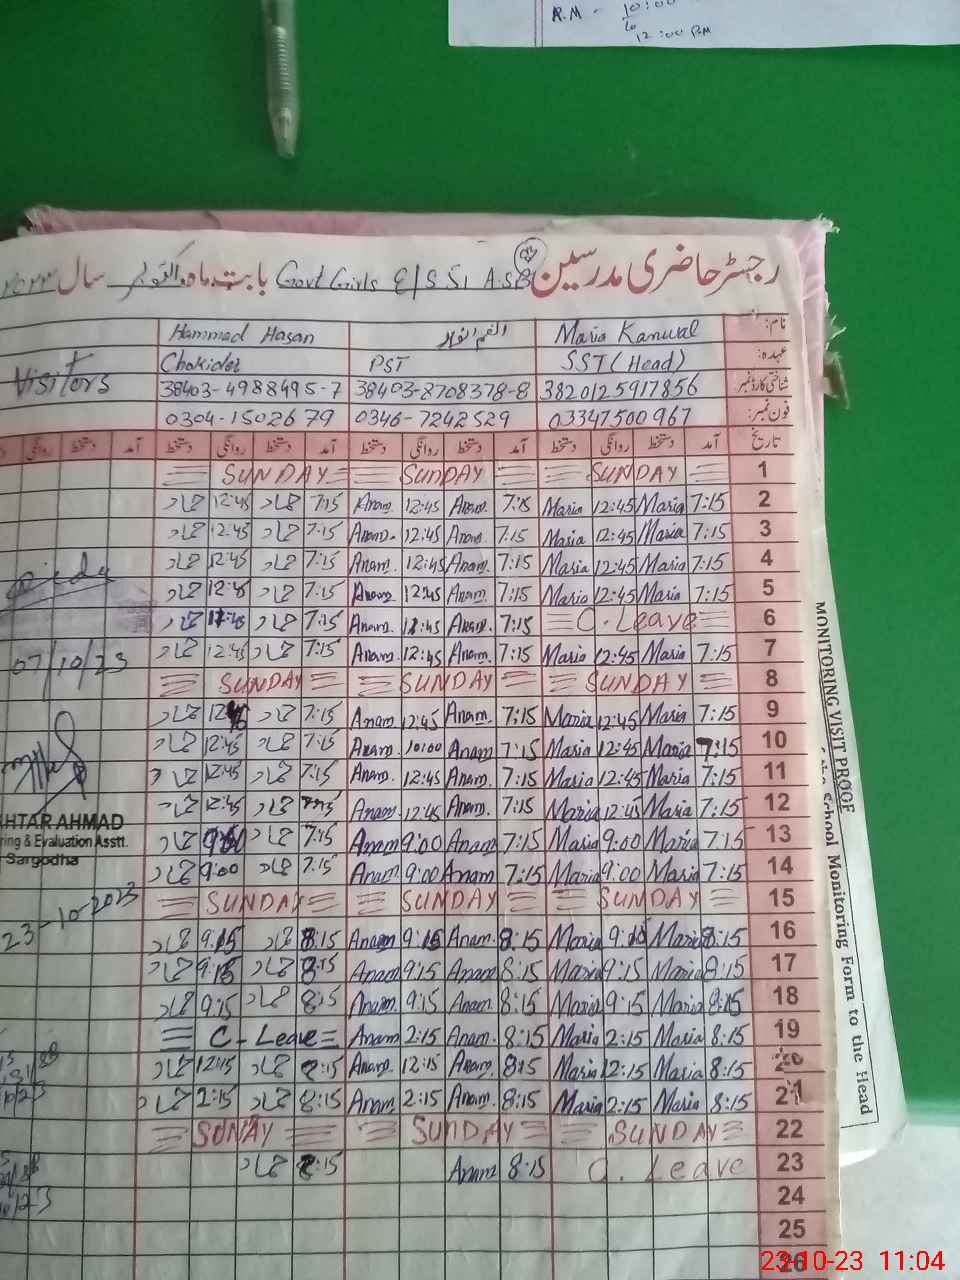 R.M - 10:00
to
12:00 PM
رجسٹر حاضری مدرسین Govt Girls E/S 51 A.SB بابت ماہ اکتوبر سال ۲۰۲۳
نام: Maria Kanwal Hammad Hasan
عہدہ: SST (Head) PST Chokider Visitors
شناختی کارڈ نمبر 3820125917856 38403-8708378-8 38403-4988495-7
فون نمبر: 03347500967 0346-7242529 0304-1502679
تاریخ آمد دستخط روانگی دستخط آمد دستخط روانگی دستخط آمد دستخط روانگی دستخط آمد دستخط روانگی
1 SUNDAY SUNDAY SUNDAY
2 7:15 Maria 12:45 Maria 7:15 Anam 12:45 Anam 7:15 حماد 12:45 حماد
3 7:15 Maria 12:45 Maria 7:15 Anam 12:45 Anam 7:15 حماد 12:45 حماد
4 7:15 Maria 12:45 Maria 7:15 Anam 12:45 Anam 7:15 حماد 12:45 حماد
5 7:15 Maria 12:45 Maria 7:15 Anam 12:45 Anam 7:15 حماد 12:45 حماد
6 C. Leave 7:15 Anam 12:45 Anam 7:15 حماد 12:45 حماد
7 7:15 Maria 12:45 Maria 7:15 Anam 12:45 Anam 7:15 حماد 12:45 حماد 07/10/23
8 SUNDAY SUNDAY SUNDAY
9 7:15 Maria 12:45 Maria 7:15 Anam 12:45 Anam 7:15 حماد 12:45 حماد
10 7:15 Maria 12:45 Maria 7:15 Anam 10:00 Anam 7:15 حماد 12:45 حماد
11 7:15 Maria 12:45 Maria 7:15 Anam 12:45 Anam 7:15 حماد 12:45 حماد
12 7:15 Maria 12:45 Maria 7:15 Anam 12:45 Anam 7:15 حماد 12:45 حماد
13 7:15 Maria 9:00 Maria 7:15 Anam 9:00 Anam 7:15 حماد 9:00 حماد
14 7:15 Maria 9:00 Maria 7:15 Anam 9:00 Anam 7:15 حماد 9:00 حماد
KHTAR AHMAD
ring & Evaluation Asstt.
Sargodha
15 SUNDAY SUNDAY SUNDAY
23-10-2023
16 8:15 Maria 9:15 Maria 8:15 Anam 9:15 Anam 8:15 حماد 9:15 حماد
17 8:15 Maria 9:15 Maria 8:15 Anam 9:15 Anam 8:15 حماد 9:15 حماد
18 8:15 Maria 9:15 Maria 8:15 Anam 9:15 Anam 8:15 حماد 9:15 حماد
19 8:15 Maria 2:15 Maria 8:15 Anam 2:15 Anam C-Leave
20 8:15 Maria 12:15 Maria 8:15 Anam 12:15 Anam 8:15 حماد 12:15 حماد
21 8:15 Maria 2:15 Maria 8:15 Anam 2:15 Anam 8:15 حماد 2:15 حماد
22 SUNDAY SUNDAY SONAY
23 C. Leave 8:15 Anam 8:15 حماد
24
25
26
MONITORING VISIT PROOF
the School Monitoring Form to the Head
23-10-23 11:04